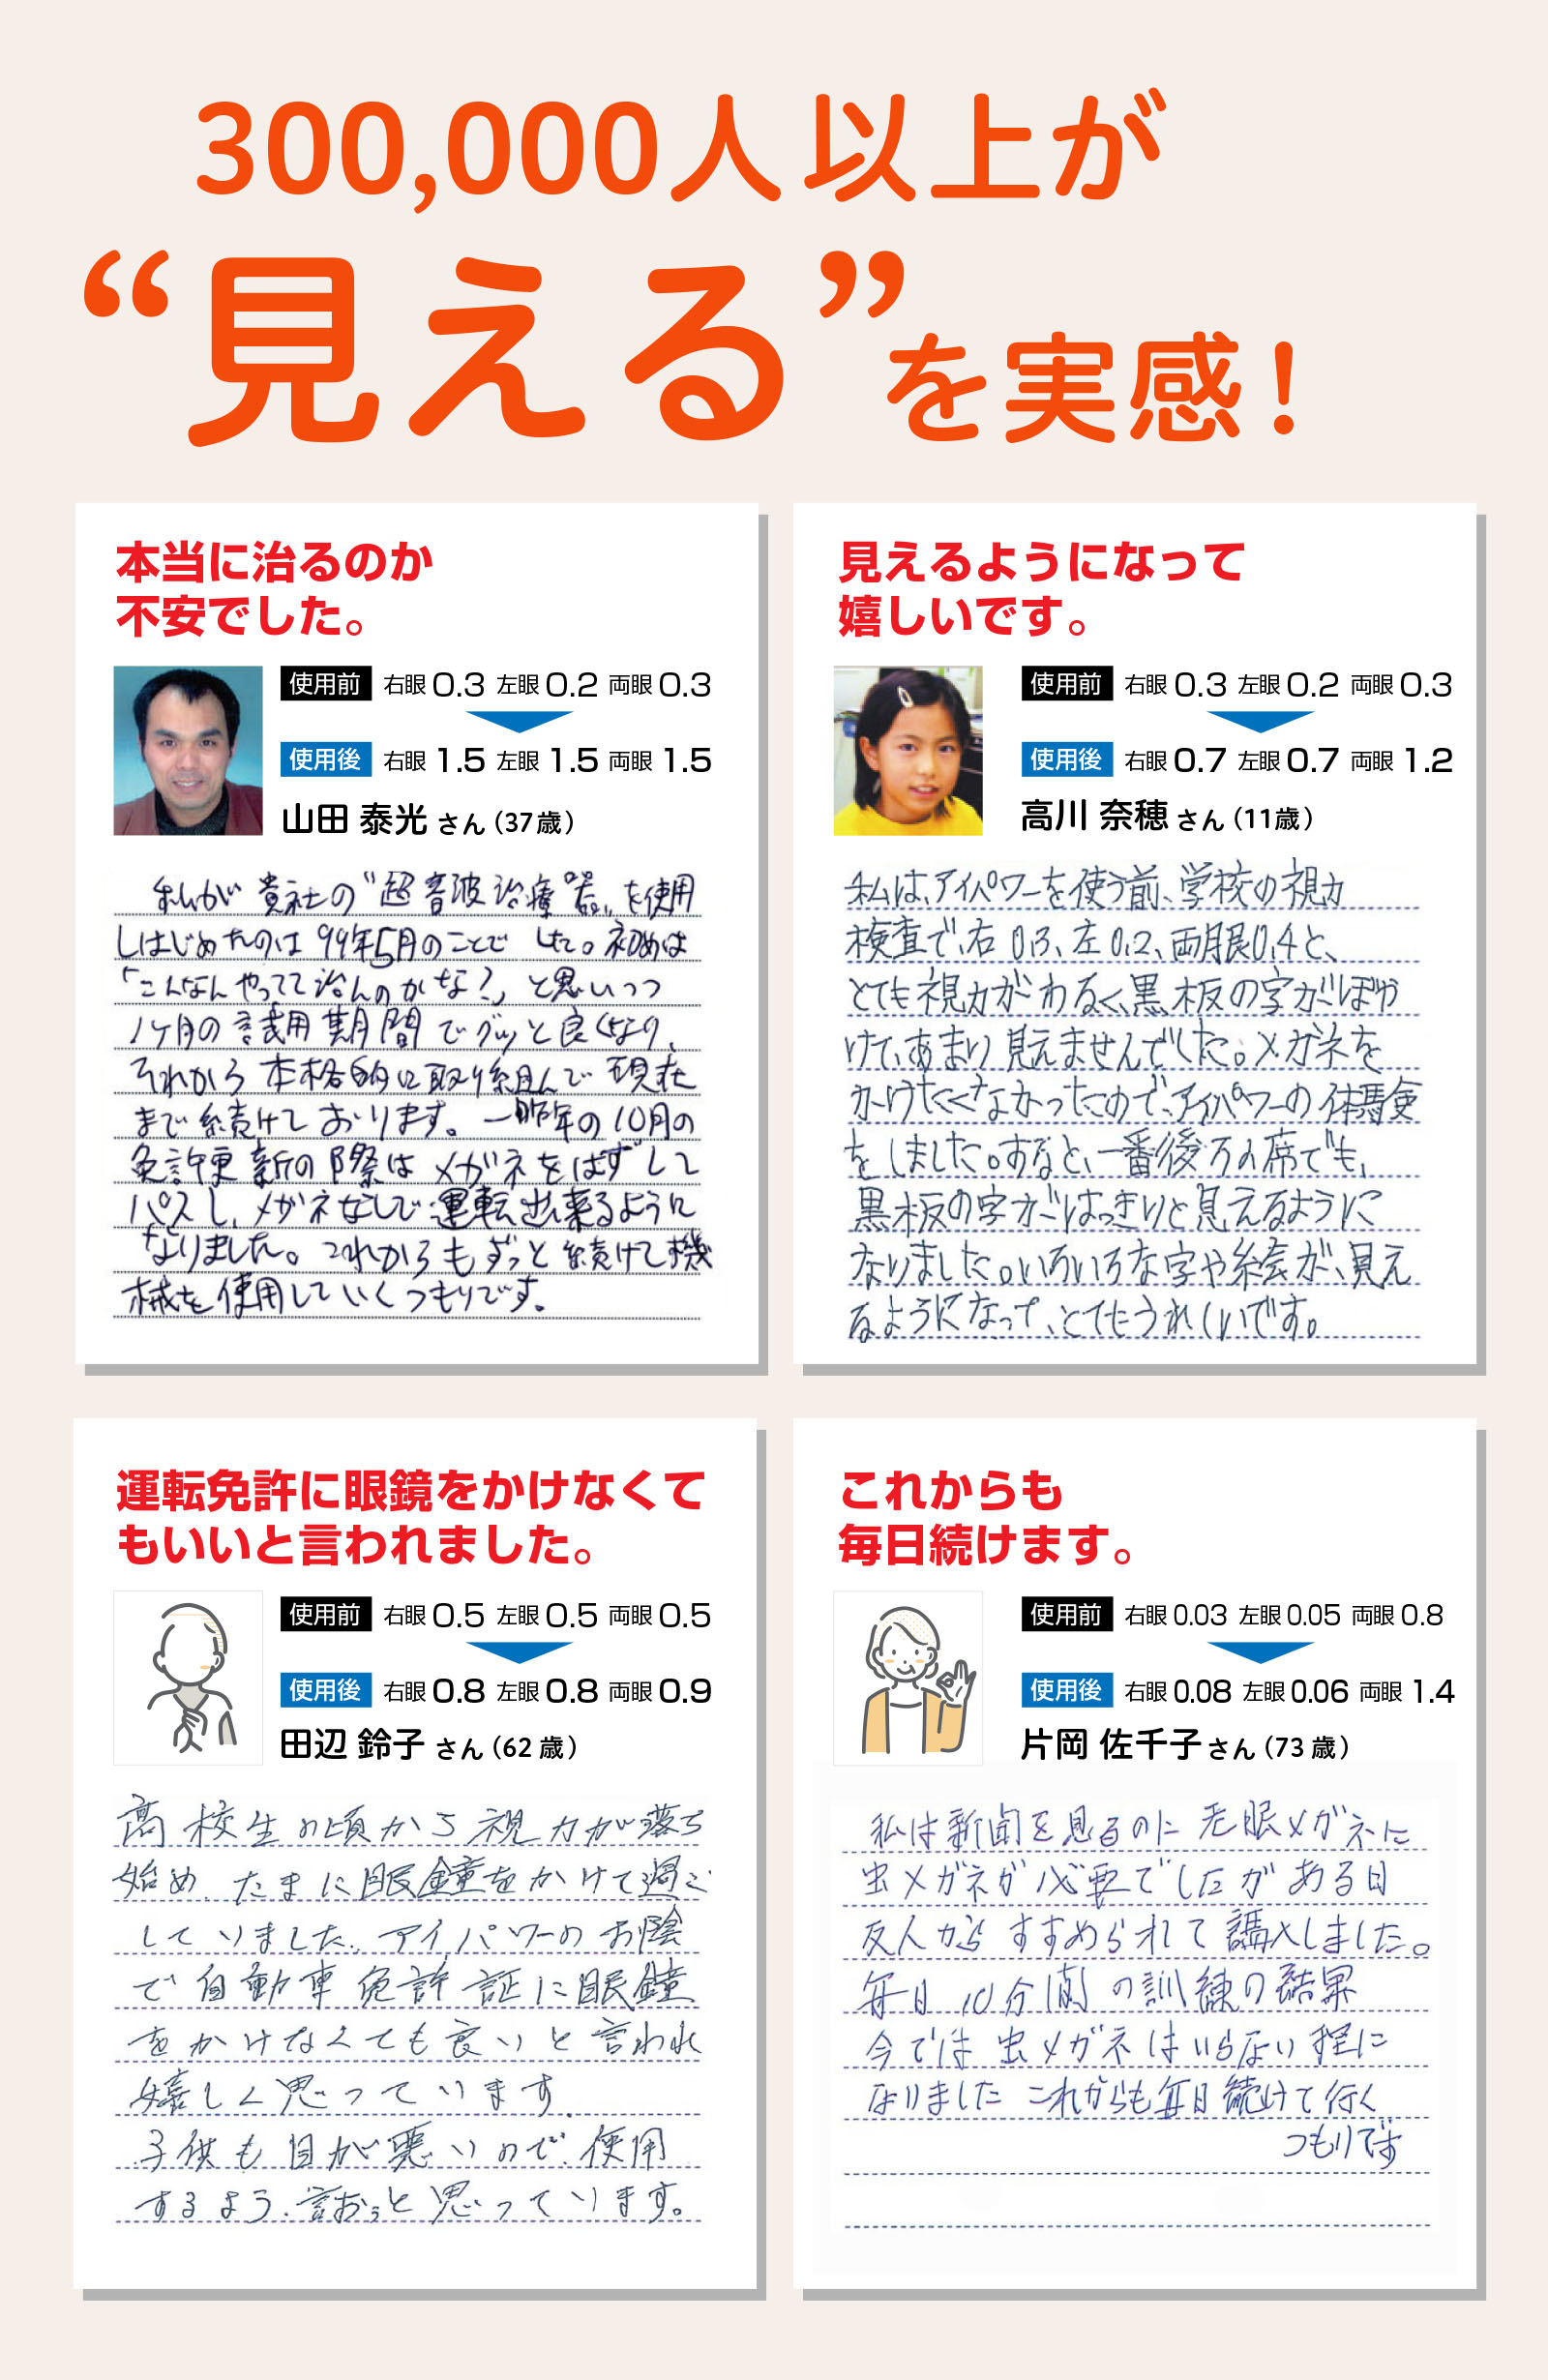 300,000人以上が
“見える”を実感！
本当に治るのか
不安でした。
使用前 右眼 0.3 左眼 0.2 両眼 0.3
使用後 右眼 1.5 左眼 1.5 両眼 1.5
山田 泰光 さん（37歳）
私が 貴社の“超音波治療器„を使用
しはじめたのは 99年5月のことでした。初めは
「こんなんやってて治んのかな?」と思いつつ
1ケ月の試用期間でグッと良くなり、
それから本格的に取り組んで 現在
まで続けております。一昨年の10月の
免許更新の際はメガネをはずして
パスし、メガネなしで運転出来るように
なりました。これからもずっと続けて機
械を使用していくつもりです。
見えるようになって
嬉しいです。
使用前 右眼 0.3 左眼 0.2 両眼 0.3
使用後 右眼 0.7 左眼 0.7 両眼 1.2
高川 奈穂 さん（11歳）
私は、アイパワーを使う前、学校の視力
検査で、右 0.3、左 0.2、両眼0.4と、
とても視力がわるく、黒板の字がぼや
けて、あまり見えませんでした。メガネを
かけたくなかったので、アイパワーの体験
をしました。すると、一番後ろの席でも、
黒板の字がはっきりと見えるように
なりました。いろいろな字や絵が、見え
るようになって、とてもうれしいです。
運転免許に眼鏡をかけなくて
もいいと言われました。
使用前 右眼 0.5 左眼 0.5 両眼 0.5
使用後 右眼 0.8 左眼 0.8 両眼 0.9
田辺 鈴子 さん（62 歳）
高校生の頃から視力が落ち
始め、たまに眼鏡をかけて過ご
していました。アイパワーのお陰
で自動車免許証に眼鏡
をかけなくても良いと言われ
嬉しく思っています。
子供も目が悪いので、使用
するよう、言おうと思っています。
これからも
毎日続けます。
使用前 右眼 0.03 左眼 0.05 両眼 0.8
使用後 右眼 0.08 左眼 0.06 両眼 1.4
片岡 佐千子さん（73 歳）
私は新聞を見るのに老眼メガネに
虫メガネが必要でしたがある日
友人からすすめられて購入しました。
毎日 10分間の訓練の結果
今では虫メガネはいらない程に
なりました これからも毎日続けて行く
つもりです